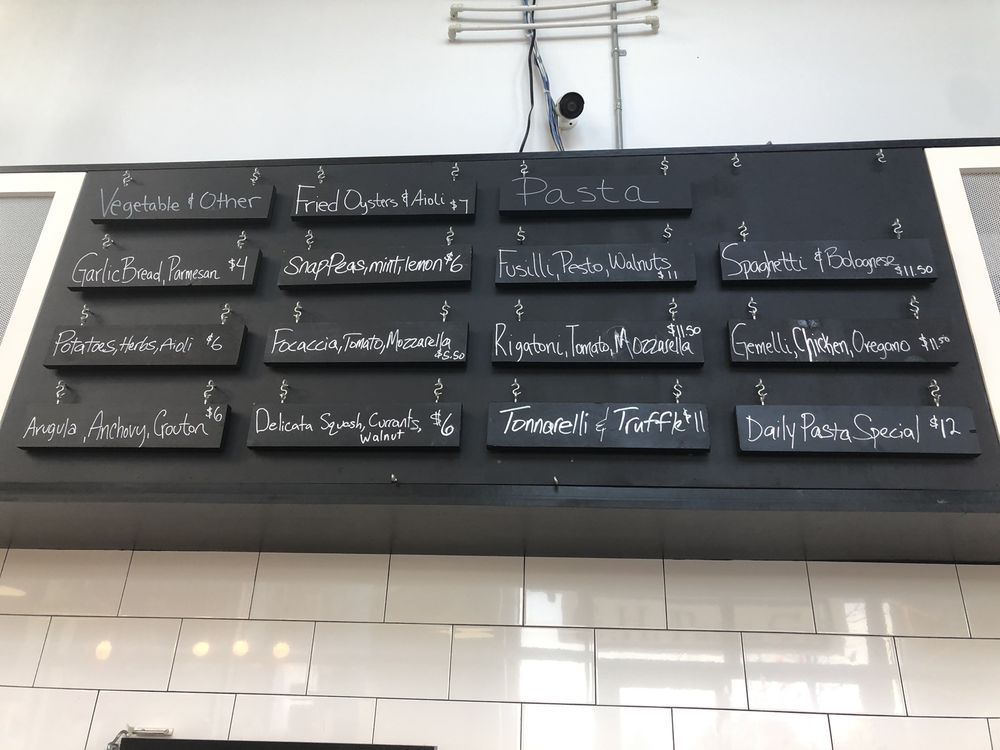 Vegetable & Other
Garlic Bread, Parmesan $4
Potatoes, Herbs, Aioli $6
Arugula, Anchovy, Crouton $6
Fried Oysters & Aioli $7
Snap Peas, mint, lemon $6
Focaccia, Tomato, Mozzarella
$5.50
Delicata Squash, Currants, $6
walnut
Pasta
Fusilli, Pesto, Walnuts
$11
Rigatoni, Tomato, Mozzarella $11.50
Tonnarelli & Truffle $11
Spaghetti & Bolognese $11.50
Gemelli, Chicken, Oregano $11.50
Daily Pasta Special $12